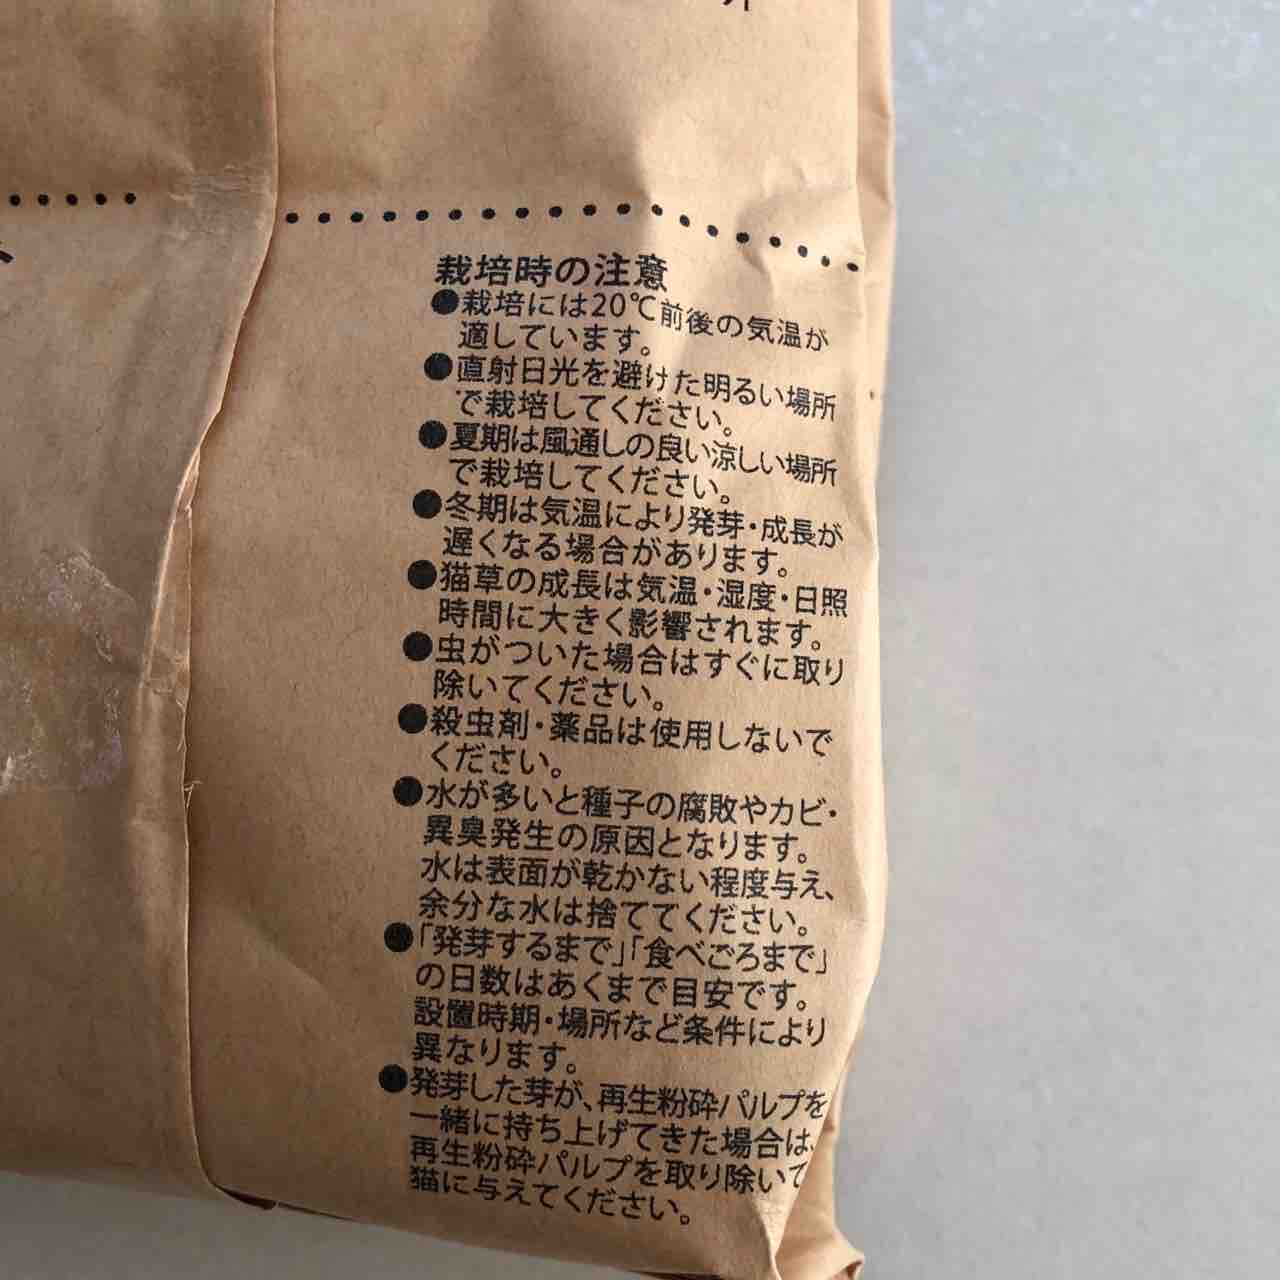 栽培時の注意
●栽培には20℃前後の気温が
適しています。
●直射日光を避けた明るい場所
で栽培してください。
●夏期は風通しの良い涼しい場所
で栽培してください。
●冬期は気温により発芽・成長が
遅くなる場合があります。
●猫草の成長は気温・湿度・日照
時間に大きく影響されます。
●虫がついた場合はすぐに取り
除いてください。
●殺虫剤・薬品は使用しないで
ください。
●水が多いと種子の腐敗やカビ・
異臭発生の原因となります。
水は表面が乾かない程度与え、
余分な水は捨ててください。
●「発芽するまで」「食べごろまで」
の日数はあくまで目安です。
設置時期・場所など条件により
異なります。
●発芽した芽が、再生粉砕パルプを
一緒に持ち上げてきた場合は、
再生粉砕パルプを取り除いて
猫に与えてください。